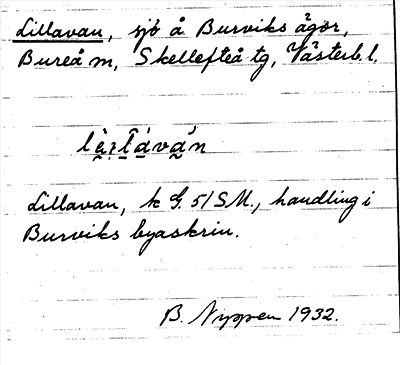 Lillavan, sjö å Burviks ägor,
Bureå m, Skellefteå tg, Västerb. l.
Lillavan, k G. 51 SM., handling i
Burviks byaskrin.
B. Nyppen 1932.